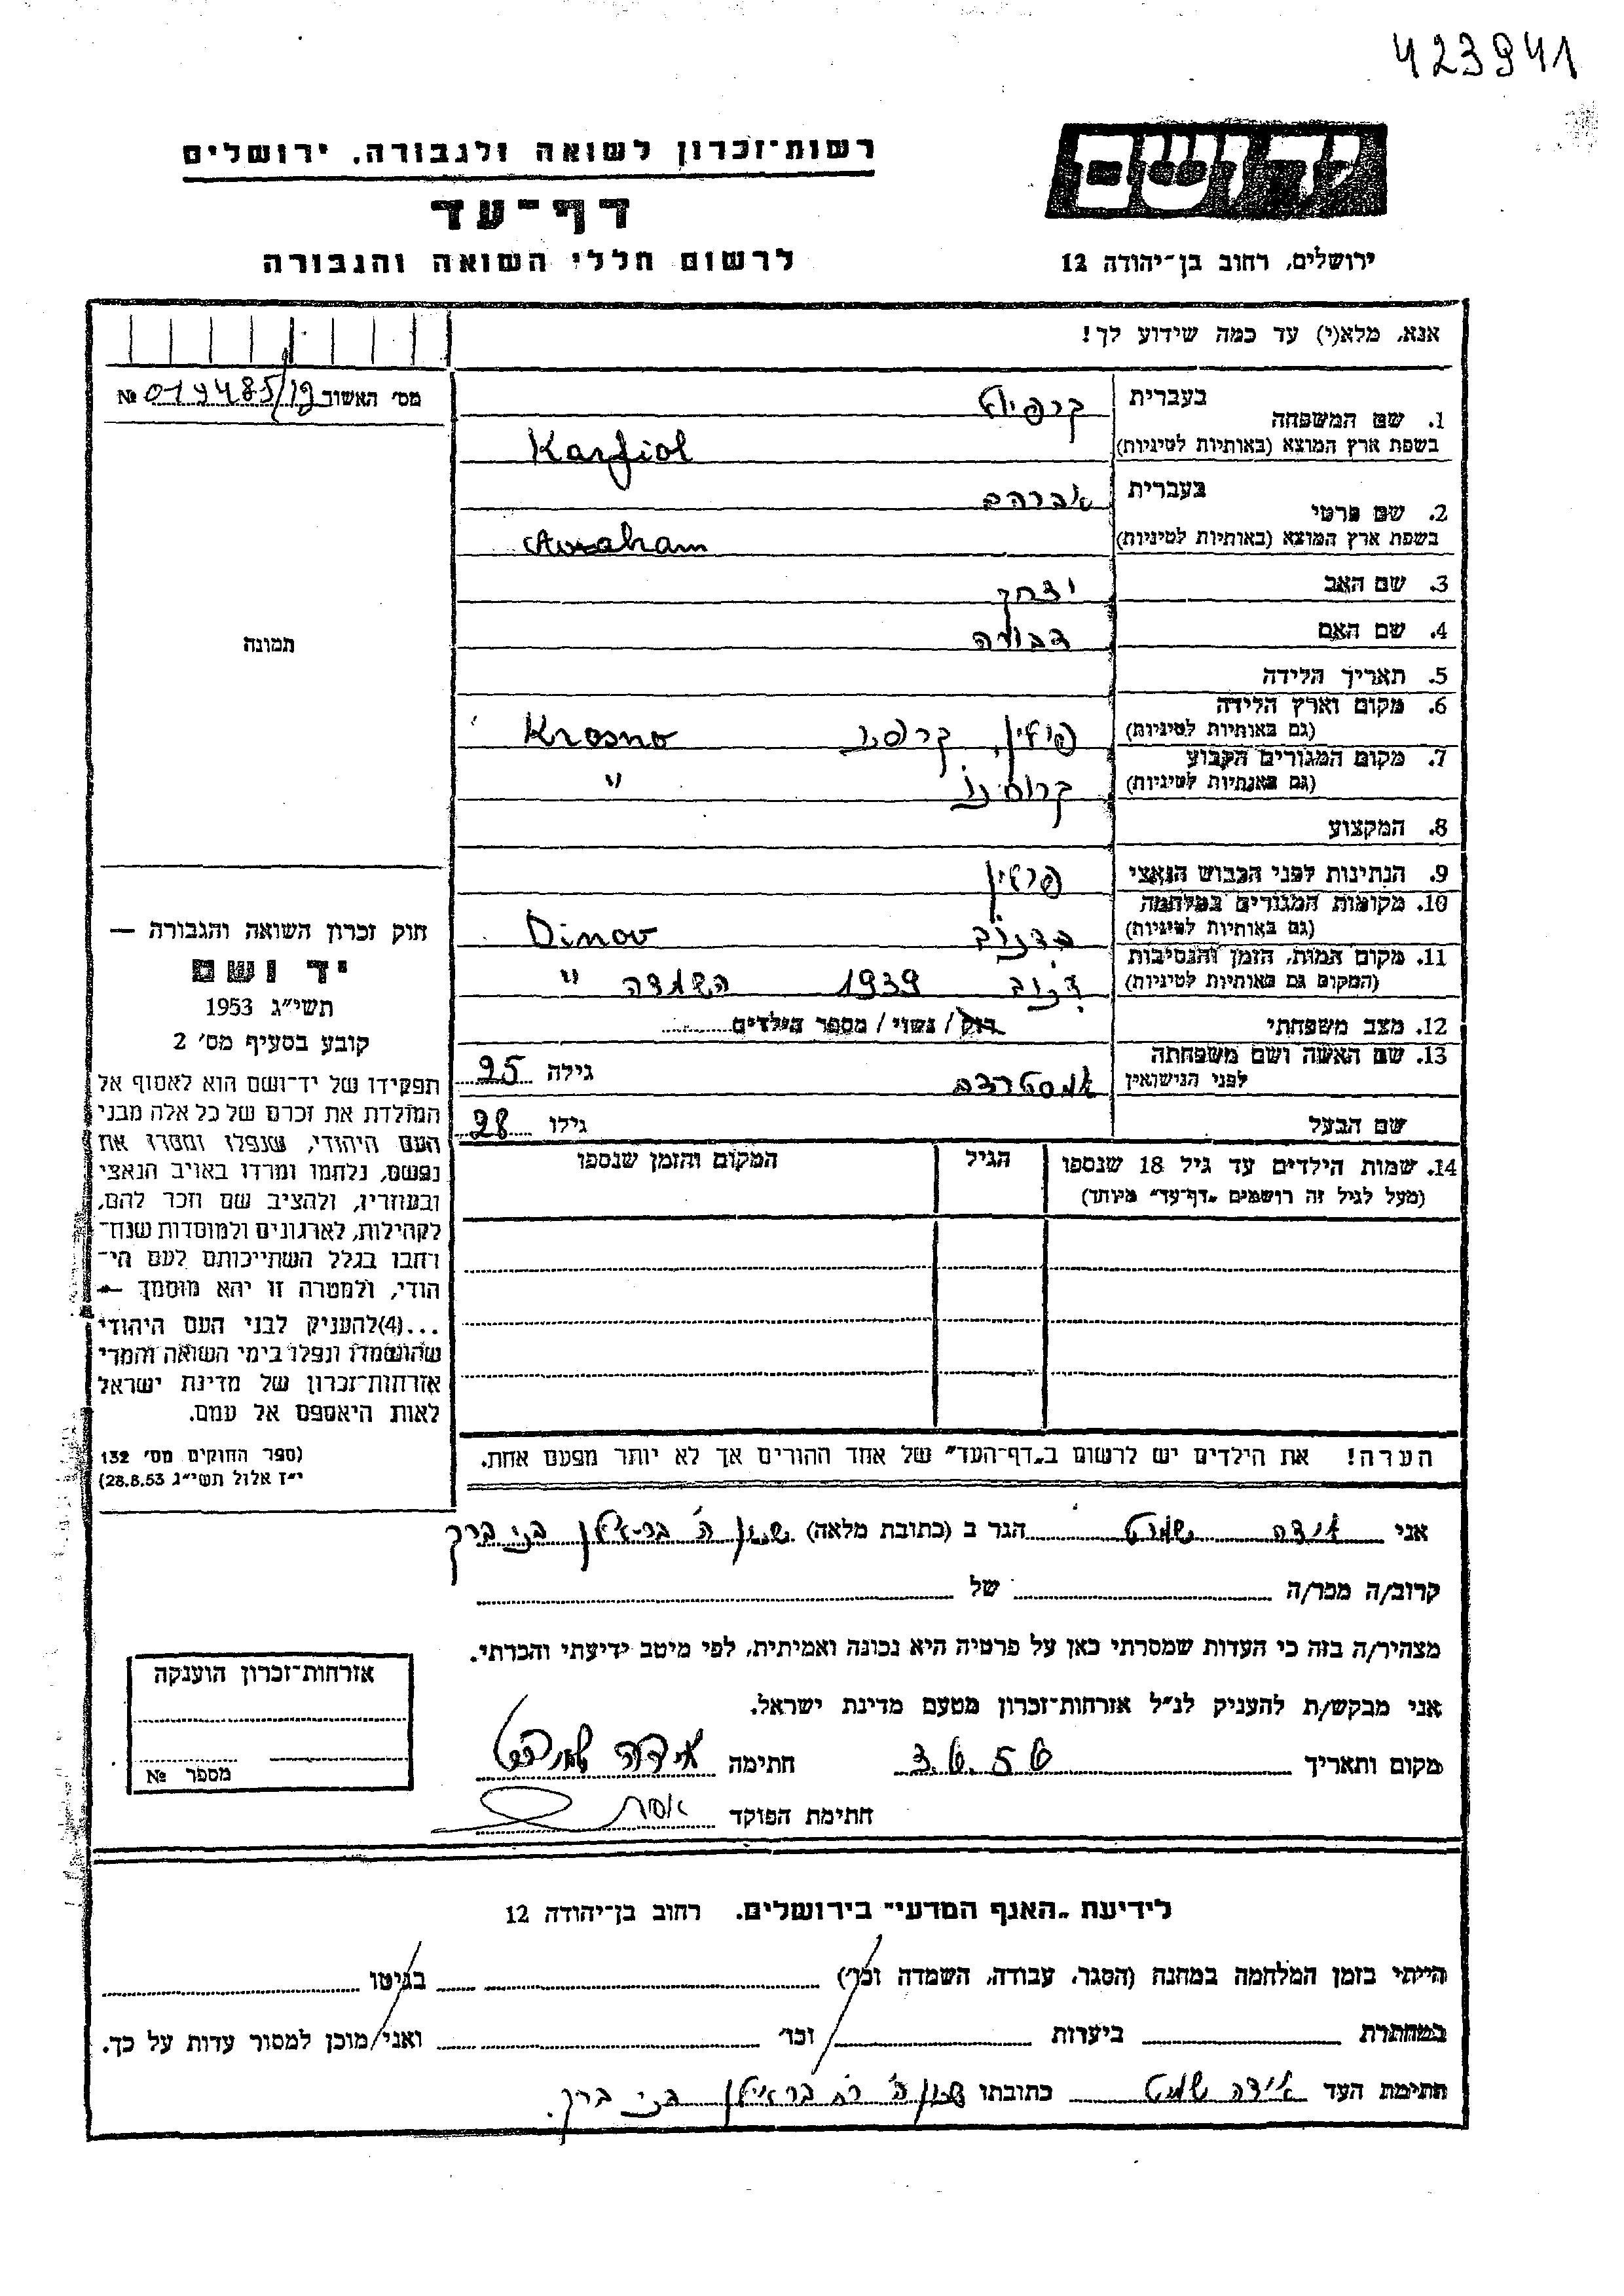 423941
רשות־זכרון לשואה ולגבורה, ירושלים
דף־עד
לרשום חללי השואה והגבורה
יד ושם
ירושלים, רחוב בן־יהודה 12
אנא, מלא(י) עד כמה שידוע לך!
מס' האשור №
1. שם המשפחה
בעברית
קרפיול
בשפת ארץ המוצא (באותיות לטיניות)
Karfiol
2. שם פרטי
בעברית
אברהם
בשפת ארץ המוצא (באותיות לטיניות)
Avraham
3. שם האב יצחק
4. שם האם דבורה
5. תאריך הלידה
6. מקום וארץ הלידה
(גם באותיות לטיניות)
פולין, Krosno
7. מקום המגורים הקבוע
(גם באותיות לטיניות)
קרוסנו "
8. המקצוע
9. הנתינות לפני הכבוש הנאצי
פולין
10. מקומות המגורים במלחמה
(גם באותיות לטיניות)
Dinov
11. מקום המות, הזמן והנסיבות
(המקום גם באותיות לטיניות)
דינוב 1939 השמדה "
12. מצב משפחתי
רווק / נשוי / מספר הילדים
13. שם האשה ושם משפחתה
לפני הנישואין
גילה 25
שם הבעל
גילו 28
14. שמות הילדים עד גיל 18 שנספו
(מעל לגיל זה רושמים „דף־עד" מיוחד)
הגיל
המקום והזמן שנספו
הערה! את הילדים יש לרשום ב„דף־העד" של אחד ההורים אך לא יותר מפעם אחת.
תמונה
חוק זכרון השואה והגבורה —
יד ושם
תשי"ג 1953
קובע בסעיף מס' 2
תפקידו של יד־ושם הוא לאסוף אל
המולדת את זכרם של כל אלה מבני
העם היהודי, שנפלו ומסרו את
נפשם, נלחמו ומרדו באויב הנאצי
ובעוזריו, ולהציב שם וזכר להם,
לקהילות, לארגונים ולמוסדות שנח־
רבו בגלל השתייכותם לעם הי־
הודי, ולמטרה זו יהא מוסמך —
...(4)להעניק לבני העם היהודי
שהושמדו ונפלו בימי השואה והמרי
אזרחות־זכרון של מדינת ישראל
לאות היאספם אל עמם.
(ספר החוקים מס' 132
י"ז אלול תשי"ג 28.8.53)
אני אידה הגר ב (כתובת מלאה) שכון ה' בר־אילן בני ברק
קרוב/ה מכר/ה של
מצהיר/ה בזה כי העדות שמסרתי כאן על פרטיה היא נכונה ואמיתית, לפי מיטב ידיעתי והכרתי.
אני מבקש/ת להעניק לנ"ל אזרחות־זכרון מטעם מדינת ישראל.
מקום ותאריך 3.6.56 חתימה אידה
חתימת הפוקד
אזרחות־זכרון הוענקה
מספר №
לידיעת „האגף המדעי" בירושלים. רחוב בן־יהודה 12
הייתי בזמן המלחמה במחנה (הסגר, עבודה, השמדה וכו') בגיטו
במחתרת ביערות וכו' ואני מוכן למסור עדות על כך.
חתימת העד אידה כתובתו שכון ה' רח בר אילן בני ברק.